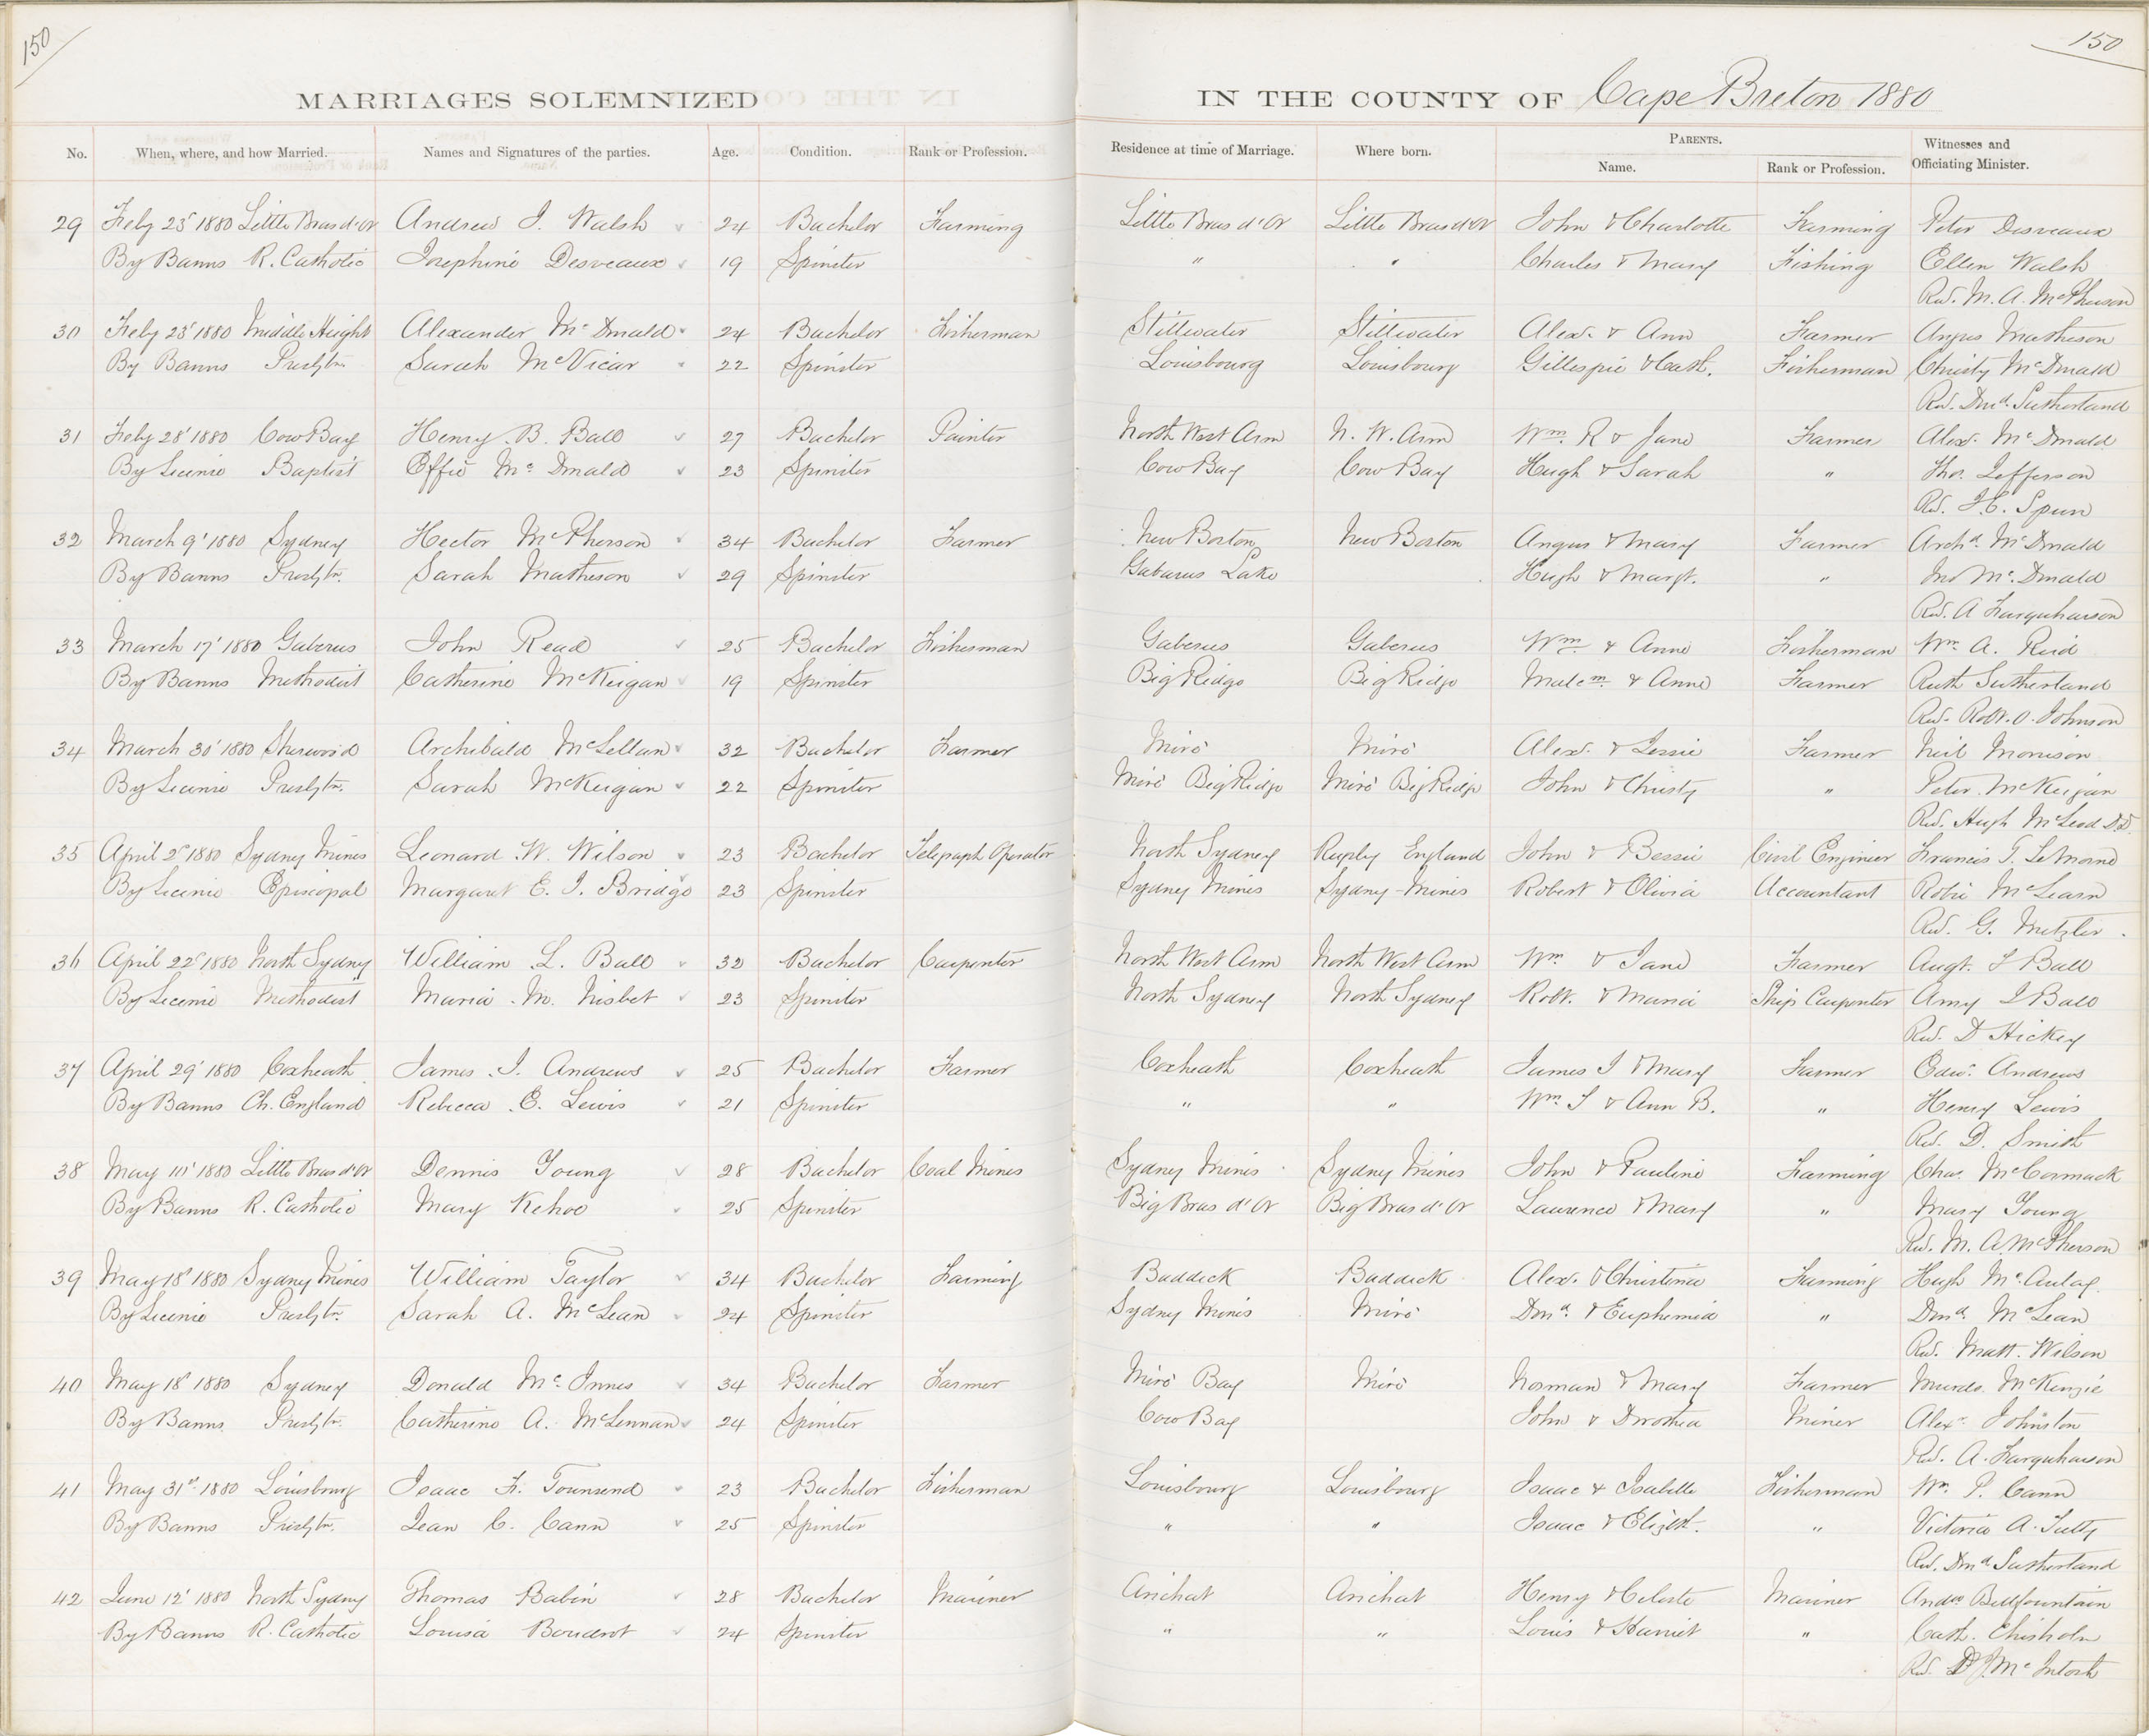 150
150
MARRIAGES SOLEMNIZED IN THE COUNTY OF Cape Breton 1880
No. When, where, and how Married. Names and Signatures of the parties. Age. Condition. Rank or Profession. Residence at time of Marriage. Where born. PARENTS. Name. Rank or Profession. Witnesses and Officiating Minister.
29 Feby 23' 1880 Little Bras d'Or Andrew J. Walsh 24 Bachelor Farming Little Bras d'Or Little Bras d'Or John & Charlotte Farming Peter Desveaux
By Banns R. Catholic Josephine Desveaux 19 Spinster " " Charles & Mary Fishing Ellen Walsh
Rev. M. A. McPherson
30 Feby 23' 1880 Height Alexander McDonald 24 Bachelor Fisherman Stillwater Stillwater Alex. & Ann Farmer Angus Matheson
By Banns Presbtn. Sarah McVicar 22 Spinster Louisbourg Louisbourg Gillespie & Cath. Fisherman Christy McDonald
Rev. Dond. Sutherland
31 Feby 28' 1880 Cow Bay Henry B. Ball 27 Bachelor Painter North West Arm N. W. Arm Wm. R & Jane Farmer Alex. McDonald
By Licence Baptist Effie McDonald 23 Spinster Cow Bay Cow Bay Hugh & Sarah " Tho. Jefferson
Rev. J. C. Spurr
32 March 9' 1880 Sydney Hector McPherson 34 Bachelor Farmer New Boston New Boston Angus & Mary Farmer Archd. McDonald
By Banns Presbtn. Sarah Matheson 29 Spinster Gabarus Lake Hugh & Margt. " Jno McDonald
Rev. A Farquharson
33 March 17' 1880 Gaberus John Read 25 Bachelor Fisherman Gaberus Gaberus Wm & Anne Fisherman Wm. A. Reid
By Banns Methodist Catherine McKeigan 19 Spinster Big Ridge Big Ridge Malcm. & Anne Farmer Ruth Sutherland
Rev. Robt. O. Johnson
34 March 30' 1880 Sherwood Archibald McLellan 32 Bachelor Farmer Miré Miré Alex. & Jessie Farmer Neil Morrison
By Licence Presbtn. Sarah McKeigan 22 Spinster Miré Big Ridge Miré Big Ridge John & Christy " Peter McKeigan
Rev. Hugh McLeod DD.
35 April 2' 1880 Sydney Mines Leonard W. Wilson 23 Bachelor Telegraph Operator North Sydney England John & Bessie Civil Engineer Francis T. LeMoine
By Licence Episcopal Margaret E. J. Bridge 23 Spinster Sydney Mines Sydney Mines Robert & Olivia Accountant Robie McLearn
Rev. G. Metzler.
36 April 22' 1880 North Sydney William L. Ball 32 Bachelor Carpenter North West Arm North West Arm Wm & Jane Farmer Augt. F Ball
By Licence Methodist Maria M. Nisbet 23 Spinster North Sydney North Sydney Robt. & Maria Ship Carpenter Amy J Ball
Rev. D Hickey
37 April 29' 1880 Coxheath James J. Andrews 25 Bachelor Farmer Coxheath Coxheath James J & Mary Farmer Edw. Andrews
By Banns Ch. England Rebecca E. Lewis 21 Spinster " " Wm. J & Ann B. " Henry Lewis
Rev. D. Smith
38 May 1880 Little Bras d'Or Dennis Young 28 Bachelor Coal Mines Sydney Mines Sydney Mines John & Pauline Farming Chas. McCormack
By Banns R. Catholic Mary Kehoe 25 Spinster Big Bras d'Or Big Bras d'Or Laurence & Mary " Mary Young
Rev. M. A. McPherson
39 May 18' 1880 Sydney Mines William Taylor 34 Bachelor Farming Baddeck Baddeck Alex. & Christina Farming Hugh McAulay
By Licence Presbtn. Sarah A. McLean 24 Spinster Sydney Mines Miré Dond. & Euphemia " Dond. McLean
Rev. Matt. Wilson
40 May 18' 1880 Sydney Donald McInnes 34 Bachelor Farmer Miré Bay Miré Norman & Mary Farmer Murdo. McKenzie
By Banns Presbtn. Catherine A. McLennan 24 Spinster Cow Bay John & Dorothea Miner Alexr. Johnston
Rev. A. Farquharson
41 May 31st 1880 Louisbourg Isaac F. Townsend 23 Bachelor Fisherman Louisbourg Louisbourg Isaac & Isabelle Fisherman Wm. P. Cann
By Banns Presbtn. Jean C. Cann 25 Spinster " " Isaac & Elizbt. " Victoria A. Tutty
Rev. Dond Sutherland
42 June 12' 1880 North Sydney Thomas Babin 28 Bachelor Mariner Arichat Arichat Henry & Celeste Mariner Andw Bellfountain
By Banns R. Catholic Louisa Boudrot 24 Spinster " " Louis & Harriet " Cath. Chisholm
Rev. D. J. McIntosh